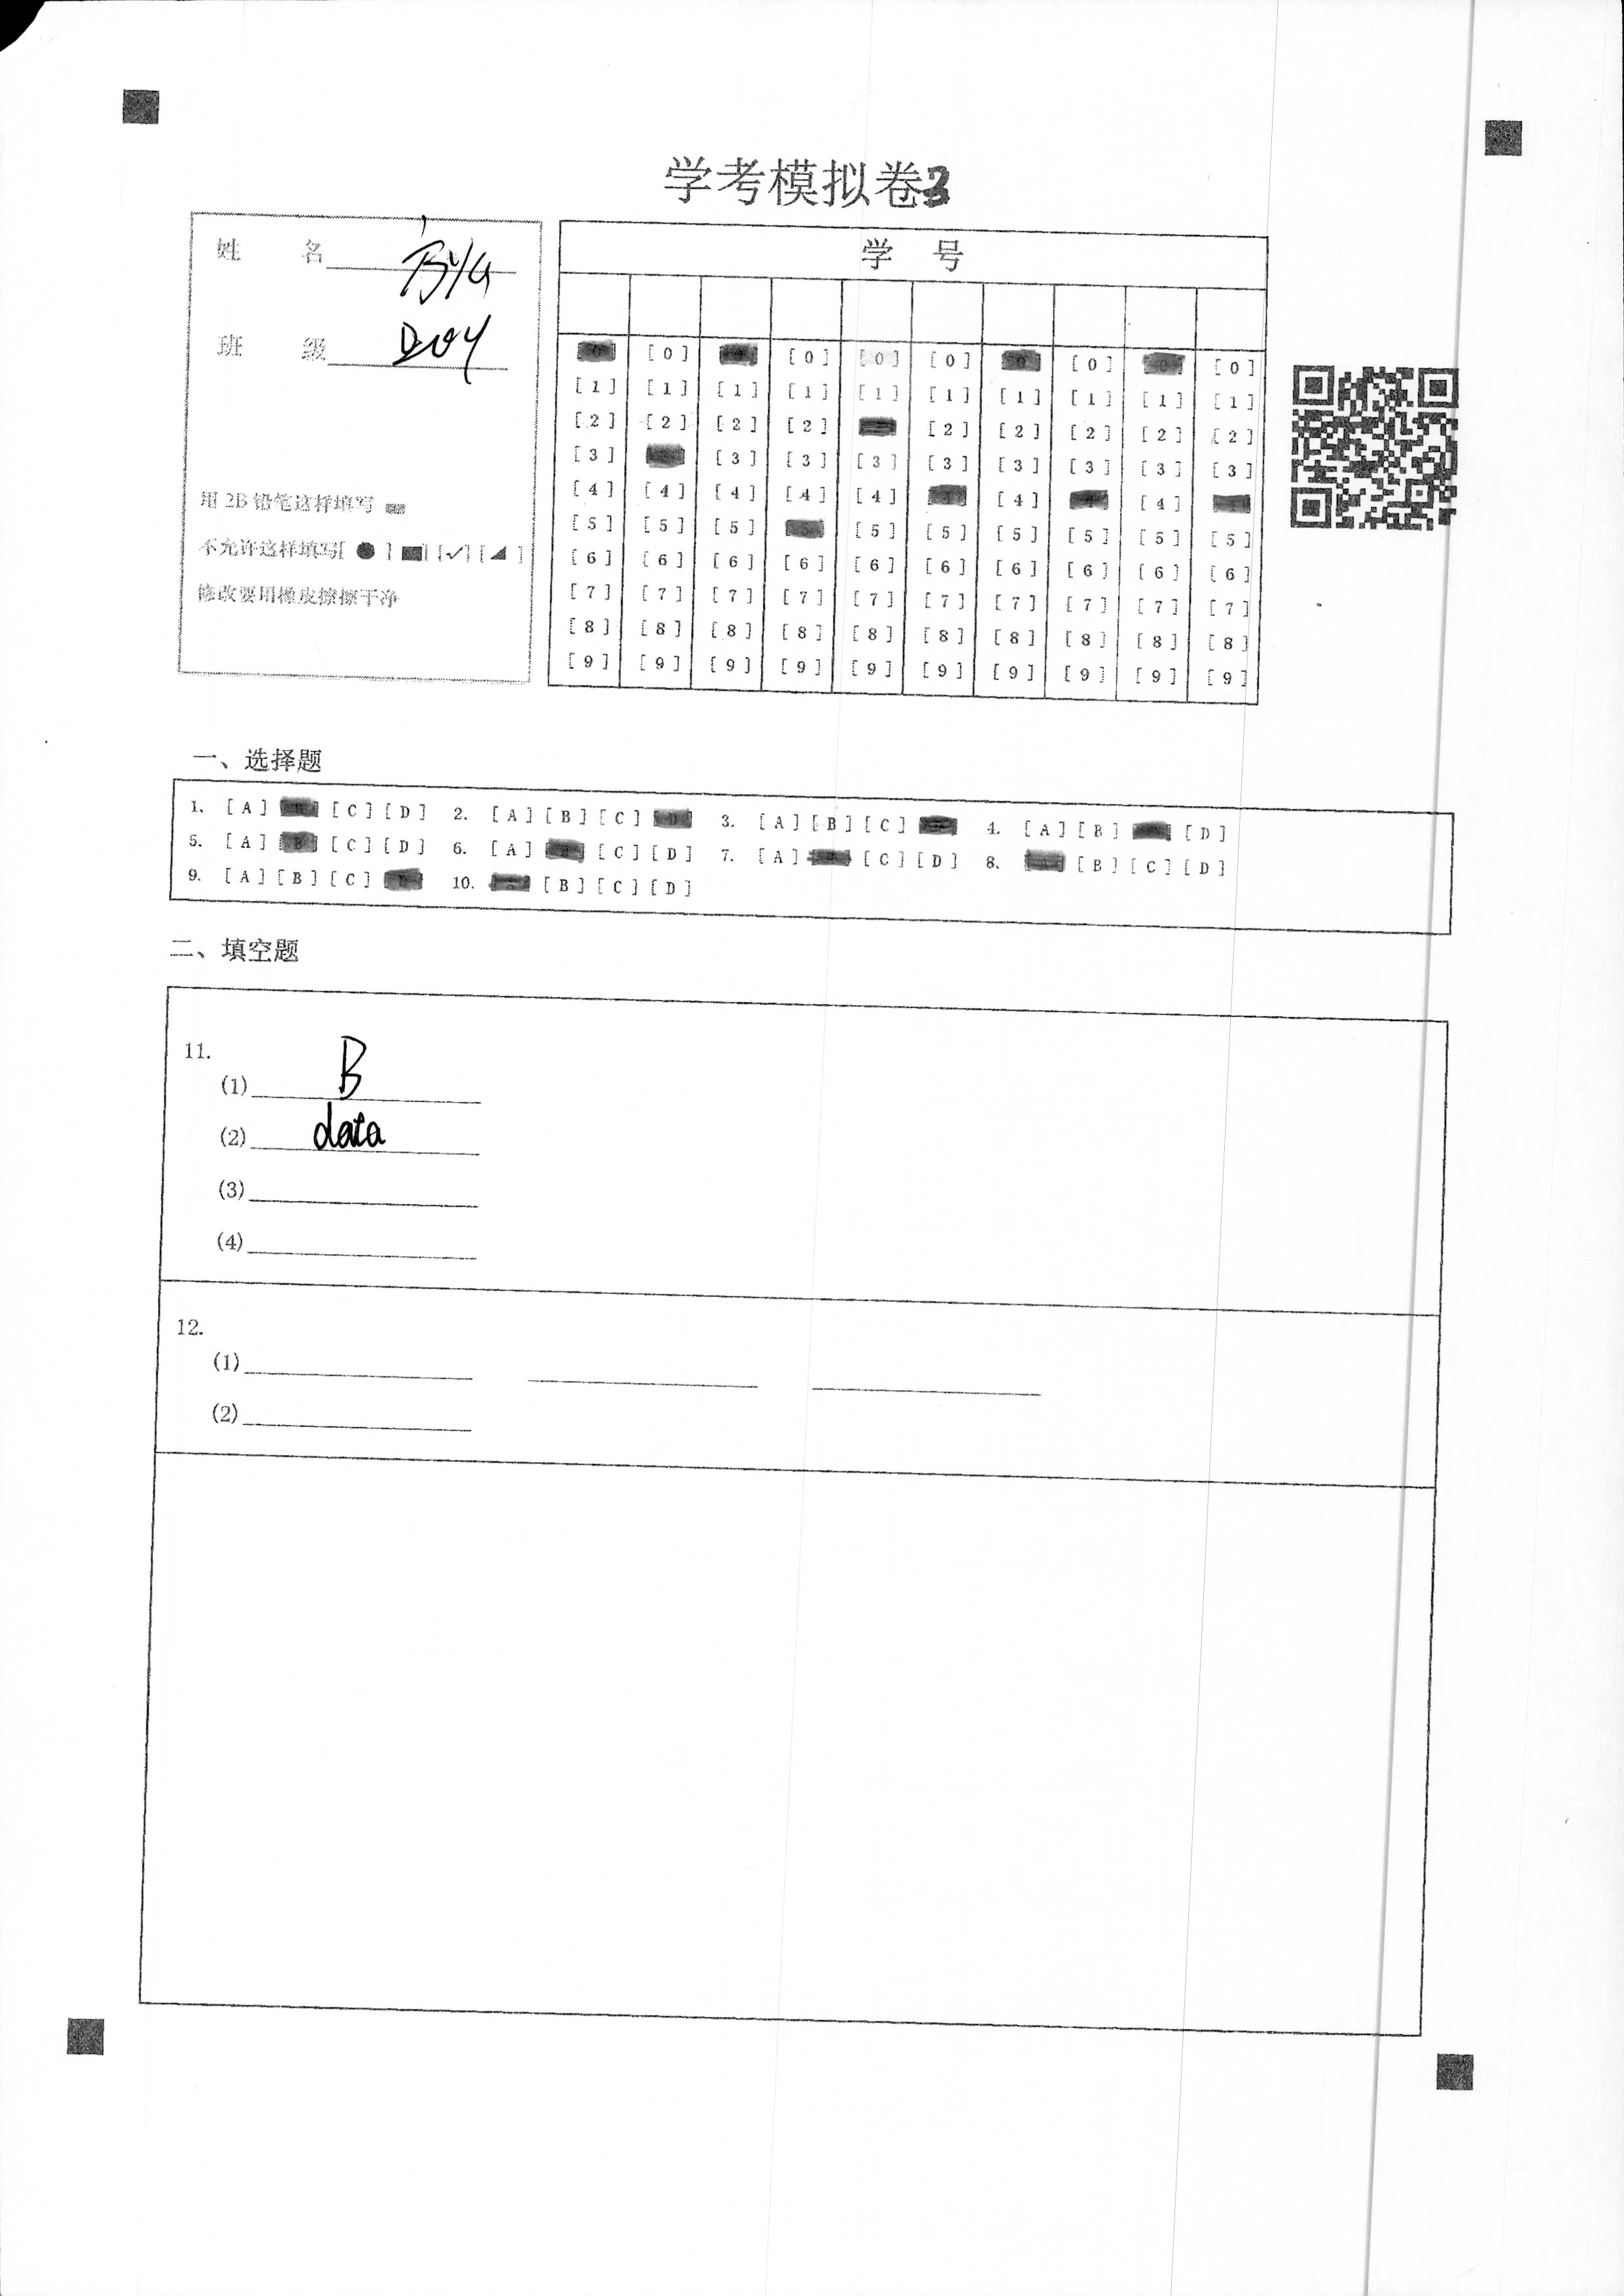 学考模拟卷3
姓 名
班 级 204
用 2B 铅笔这样填写
不允许这样填写[ ● ] ■] [✓] [◢ ]
修改要用橡皮擦擦干净
学 号
[0] [0] [0] [0] [0] [0]
[1] [1] [1] [1] [1] [1] [1] [1] [1] [1]
[2] [2] [2] [2] [2] [2] [2] [2] [2]
[3] [3] [3] [3] [3] [3] [3] [3] [3]
[4] [4] [4] [4] [4] [4] [4]
[5] [5] [5] [5] [5] [5] [5] [5] [5]
[6] [6] [6] [6] [6] [6] [6] [6] [6] [6]
[7] [7] [7] [7] [7] [7] [7] [7] [7] [7]
[8] [8] [8] [8] [8] [8] [8] [8] [8] [8]
[9] [9] [9] [9] [9] [9] [9] [9] [9] [9]
一、选择题
1. [A] [C] [D] 2. [A] [B] [C] [D] 3. [A] [B] [C] 4. [A] [B] [D]
5. [A] [B] [C] [D] 6. [A] [C] [D] 7. [A] [C] [D] 8. [B] [C] [D]
9. [A] [B] [C] 10. [B] [C] [D]
二、填空题
11.
(1) B
(2) data
(3)
(4)
12.
(1)
(2)